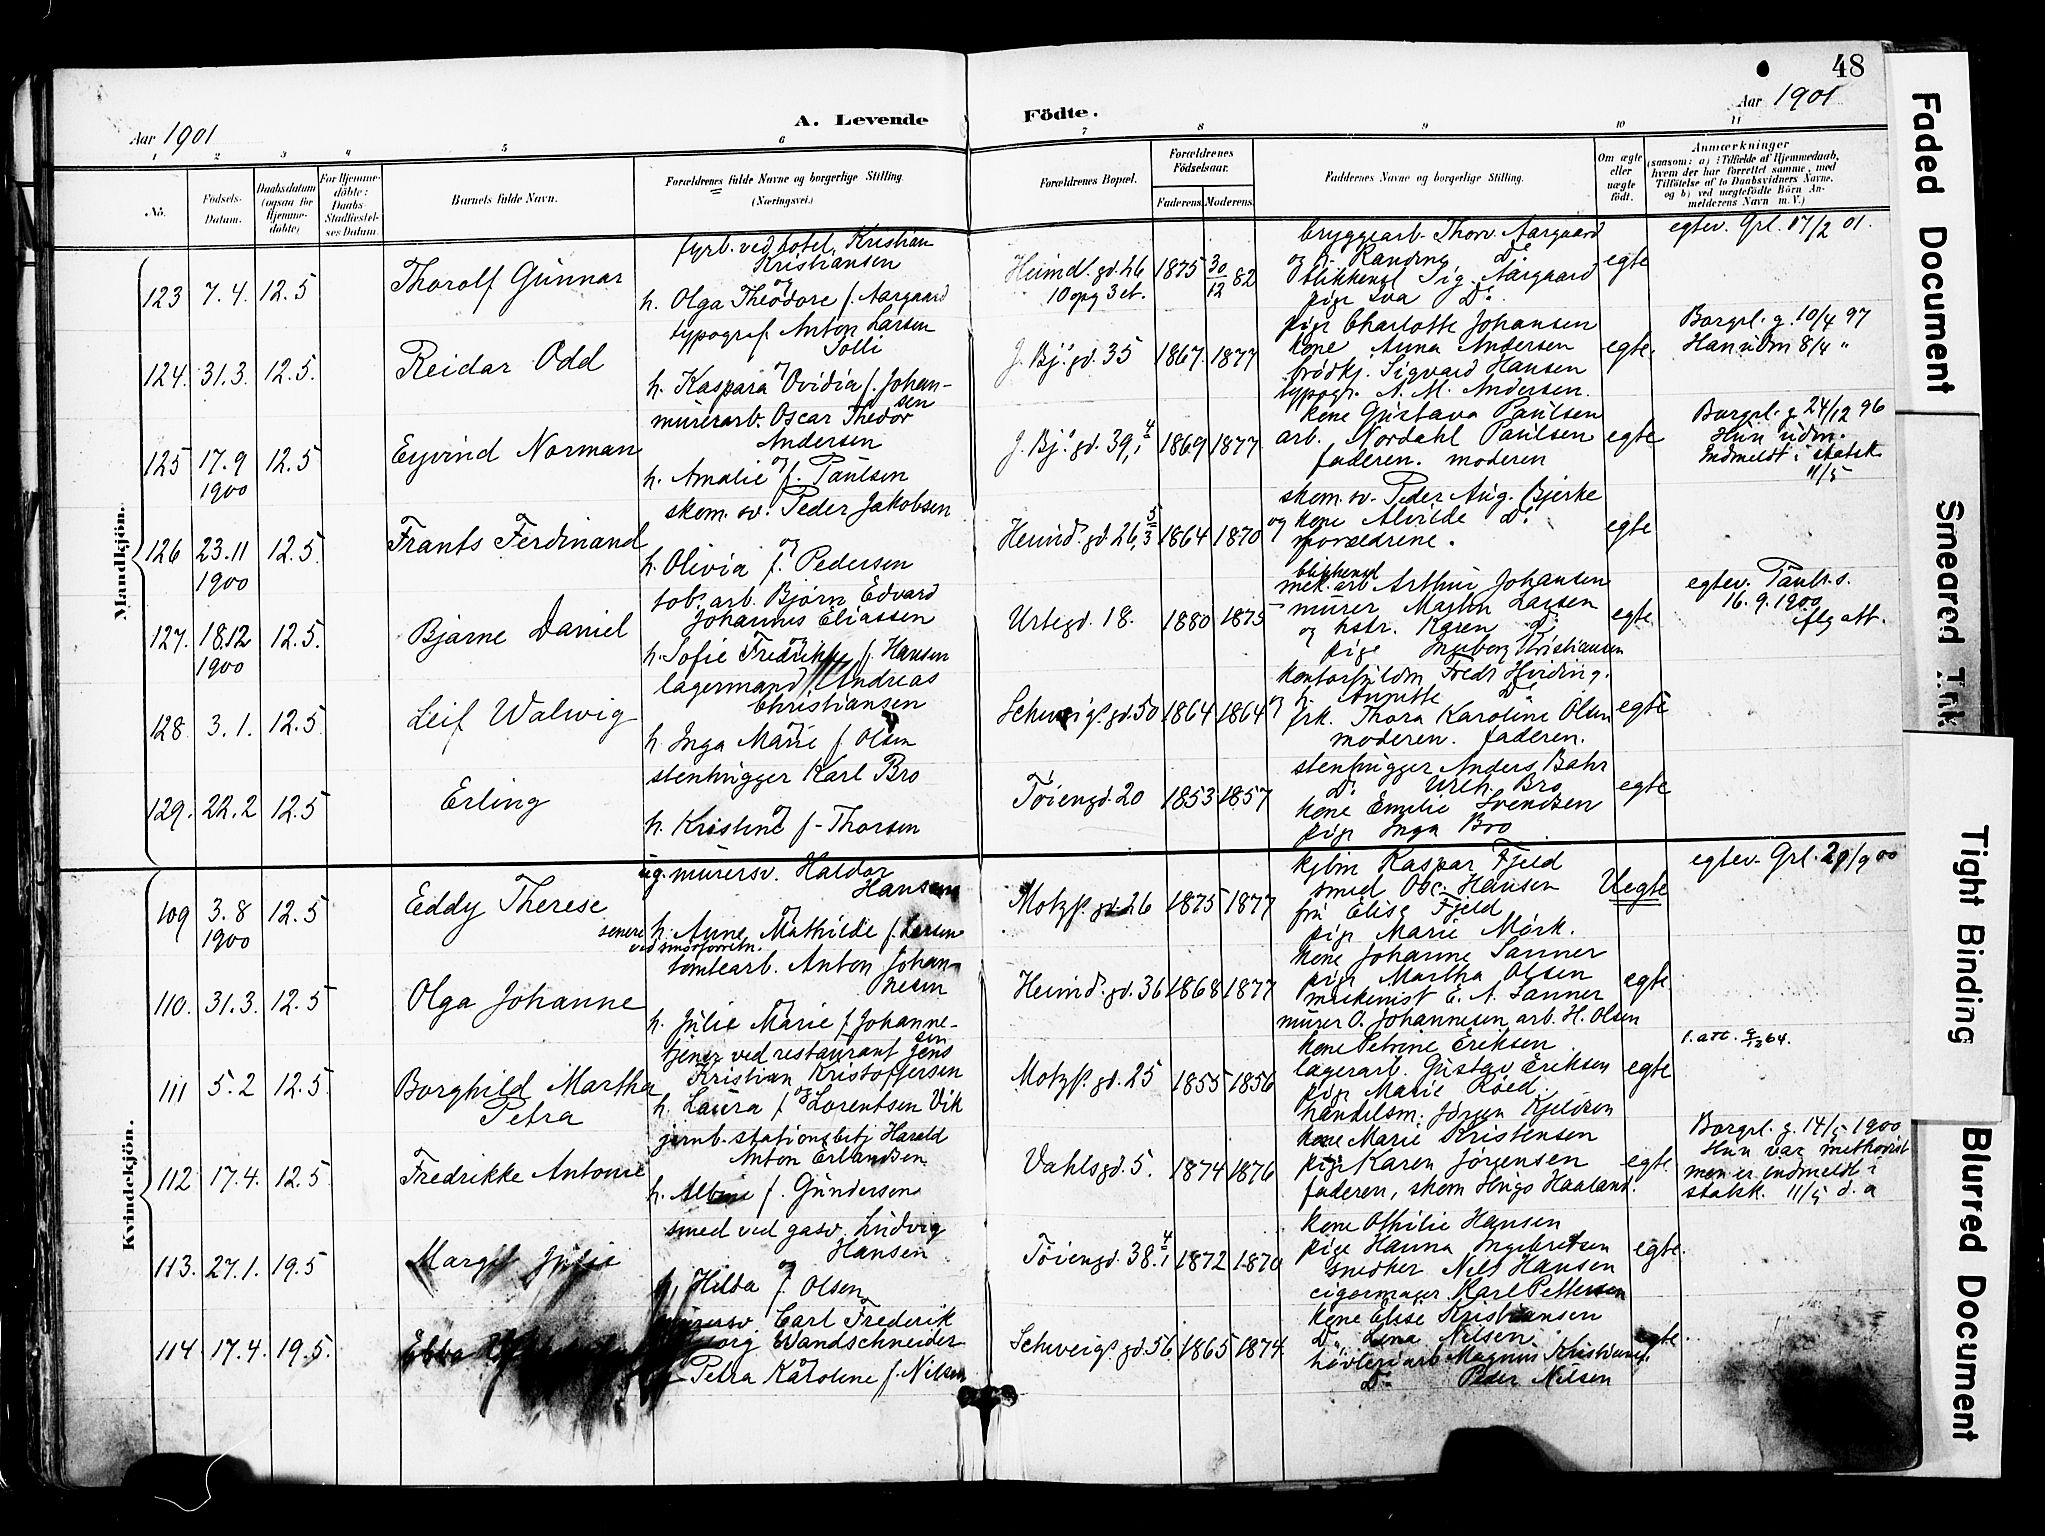 48
Aar 1901
A. Levende Födte.
Aar 1901
1 2 3 4 5 6 7 8 9 10 11
No.
Födsels-Datum.
Daabsdatum (ogsaa for Hjemme-döbte)
For Hjemme-döbte: Daabs-Stadfæstel-ses Datum.
Barnets fulde Navn.
Forældrenes fulde Navne og borgerlige Stilling. (Næringsvei.)
Forældrenes Bopæl.
Forældrenes Födselsaar.
Faderens. Moderens.
Faddernes Navne og borgerlige Stilling.
Om ægte eller uægte födt.
Anmærkninger
(saasom: a) i Tilfælde af Hjemmedaab, hvem der har forrettet samme, med Tilföielse af to Daabsvidners Navne, og b) ved uægtefödte Börn An-melderens Navn m. V.)
Mandkjön.
123 7.4. 12.5 Thorolf Gunnar
fyrb. ved hotel, Kristian
Kristiansen
og
h. Olga Theodore f. Aargaard
Heimd. gd. 26
10 opg 3 et.
1875 30/12 82
bryggearb. Thorv. Aargaard
og h. Randine Do
blikkensl Sig. Aargaard
pige Eva Do
egte
egtev. Grl. 17/2 01.
124. 31.3. 12.5. Reidar Odd
typograf. Anton Larsen
Solli
og
h. Kaspara Ovidia f. Johan-
sen
J. Bj. gd. 35 1867. 1877
pige Charlotte Johansen
kone Anna Andersen
brødkj. Sigvard Hansen
typogr. N. M. Andersen.
egte.
Borgrl. g. 10/4 97
Han udm 8/4 "
125 17.9 1900 12.5 Eyvind Norman
murerarb. Oscar Thedor
Andersen
og
h. Amalie f. Paulsen
J. Bj. gd. 39, 4/1 1869 1877
kone Gustava Paulsen
arb. Nordahl Paulsen
faderen. moderen
egte
Borgrl. g 24/12 96
Hun udm.
Indmeldt i statsk.
11/5
126 23.11 1900 12.5 Frants Ferdinand
skom. sv. Peder Jakobsen
og
h. Olivia f. Pedersen
Heimd. gd. 26, 5/3 1864 1870
skom. sv. Peder Aug. Bjerke
og kone Alvilde Do
forældrene.
egte
127. 18.12 1900 12.5. Bjarne Daniel
tob. arb. Bjørn Edvard
Johannes Eliassen
og
h. Sofie Fredrikke f. Hansen
Urtegd. 18. 1880 1875
blikkensl
mek. arb Arthur Johansen
murer Martin Larsen
og hstr. Karen Do
pige Ingeborg Kristiansen
egte.
egtev. Paulr. s.
16. 9. 1900
iflg att.
128. 3.1. 12.5 Leif Walwig
lagermand Andreas
Christiansen
og
h. Inga Marie f. Olsen
Schweigs. gd. 50 1864 1864
kontorfuldm Fredr Hviding.
og h. Annette Do
frk. Thora Karoline Olsen
moderen. faderen.
egte
129. 22.2 12.5 Erling
stenhugger Karl Bro
og
h. Kristine f. Thorsen
Tøiengd. 20 1853 1857
stenhugger Anders Bahr
Do Wilh. Bro
kone Emilie Svendsen
pige Inga Bro
egte
Kvindekjön.
109 3.8 1900 12.5 Eddy Therese
ug. murersv. Haldor
Hansen
og
senere h. Anne Mathilde f. Larsen
Motzf. gd. 26 1875 1877
kjbm Kaspar Fjeld
smed Osc. Hansen
fru Elise Fjeld
pige Marie Mørk.
Uegte
egtev. Grl. 29/9 00
110. 31.3. 12.5 Olga Johanne
ved smørforretn.
tomtearb. Anton Johan-
nesen
og
h. Julie Marie f. Johanne-
sen
Heimd. gd. 36 1868 1877
kone Johanne Sanner
pige Martha Olsen
maskinist E. A. Sanner
murer O. Johannesen arb. H. Olsen
egte
111 5.2 12.5 Borghild Martha
Petra
tjener ved restaurant Jens
Kristian Kristoffersen
og
h. Laura f. Lorentsen Vik
Motzf. gd. 25 1855 1856
kone Petrine Eriksen
lagerarb. Gustav Eriksen
pige Marie Røed.
handelsm. Jørgen Kjelsen
egte
112 17.4. 12.5. Fredrikke Antonie
jernb. stationsbetj Harald
Anton Erlandsen
h. Albine f. Gundersen
Vahlsgd. 5. 1874 1876
kone Marie Kristensen
pige Karen Jørgensen
faderen, skom Hugo Haaland.
egte
Borgrl. g. 14/5 1900
Hun var methodist
men er indmeldt i
statsk. 11/5 d. a
113. 27.1. 19.5 Margit Julie
smed ved gasv. Ludvig
Hansen
og
h. Hilda f. Olsen
Tøiengd. 38. 4/1 1872 1870
kone Othilie Hansen
pige Hanna Ingebretsen
snedker Nils Hansen
cigarmager Karl Pettersen
egte.
114 17.4. 19.5. Ebba
murersv Carl Frederik
Georg Wandschneider
og
Petra Karoline f. Nilsen
Schweigs. gd. 56. 1865 1874
kone Elise Kristiansen
Do Lina Nilsen
høvleriarb Magnus Kristiansen
Do Peder Nilsen
egte.
Faded Document
Smeared Ink
Tight Binding
Blurred Document